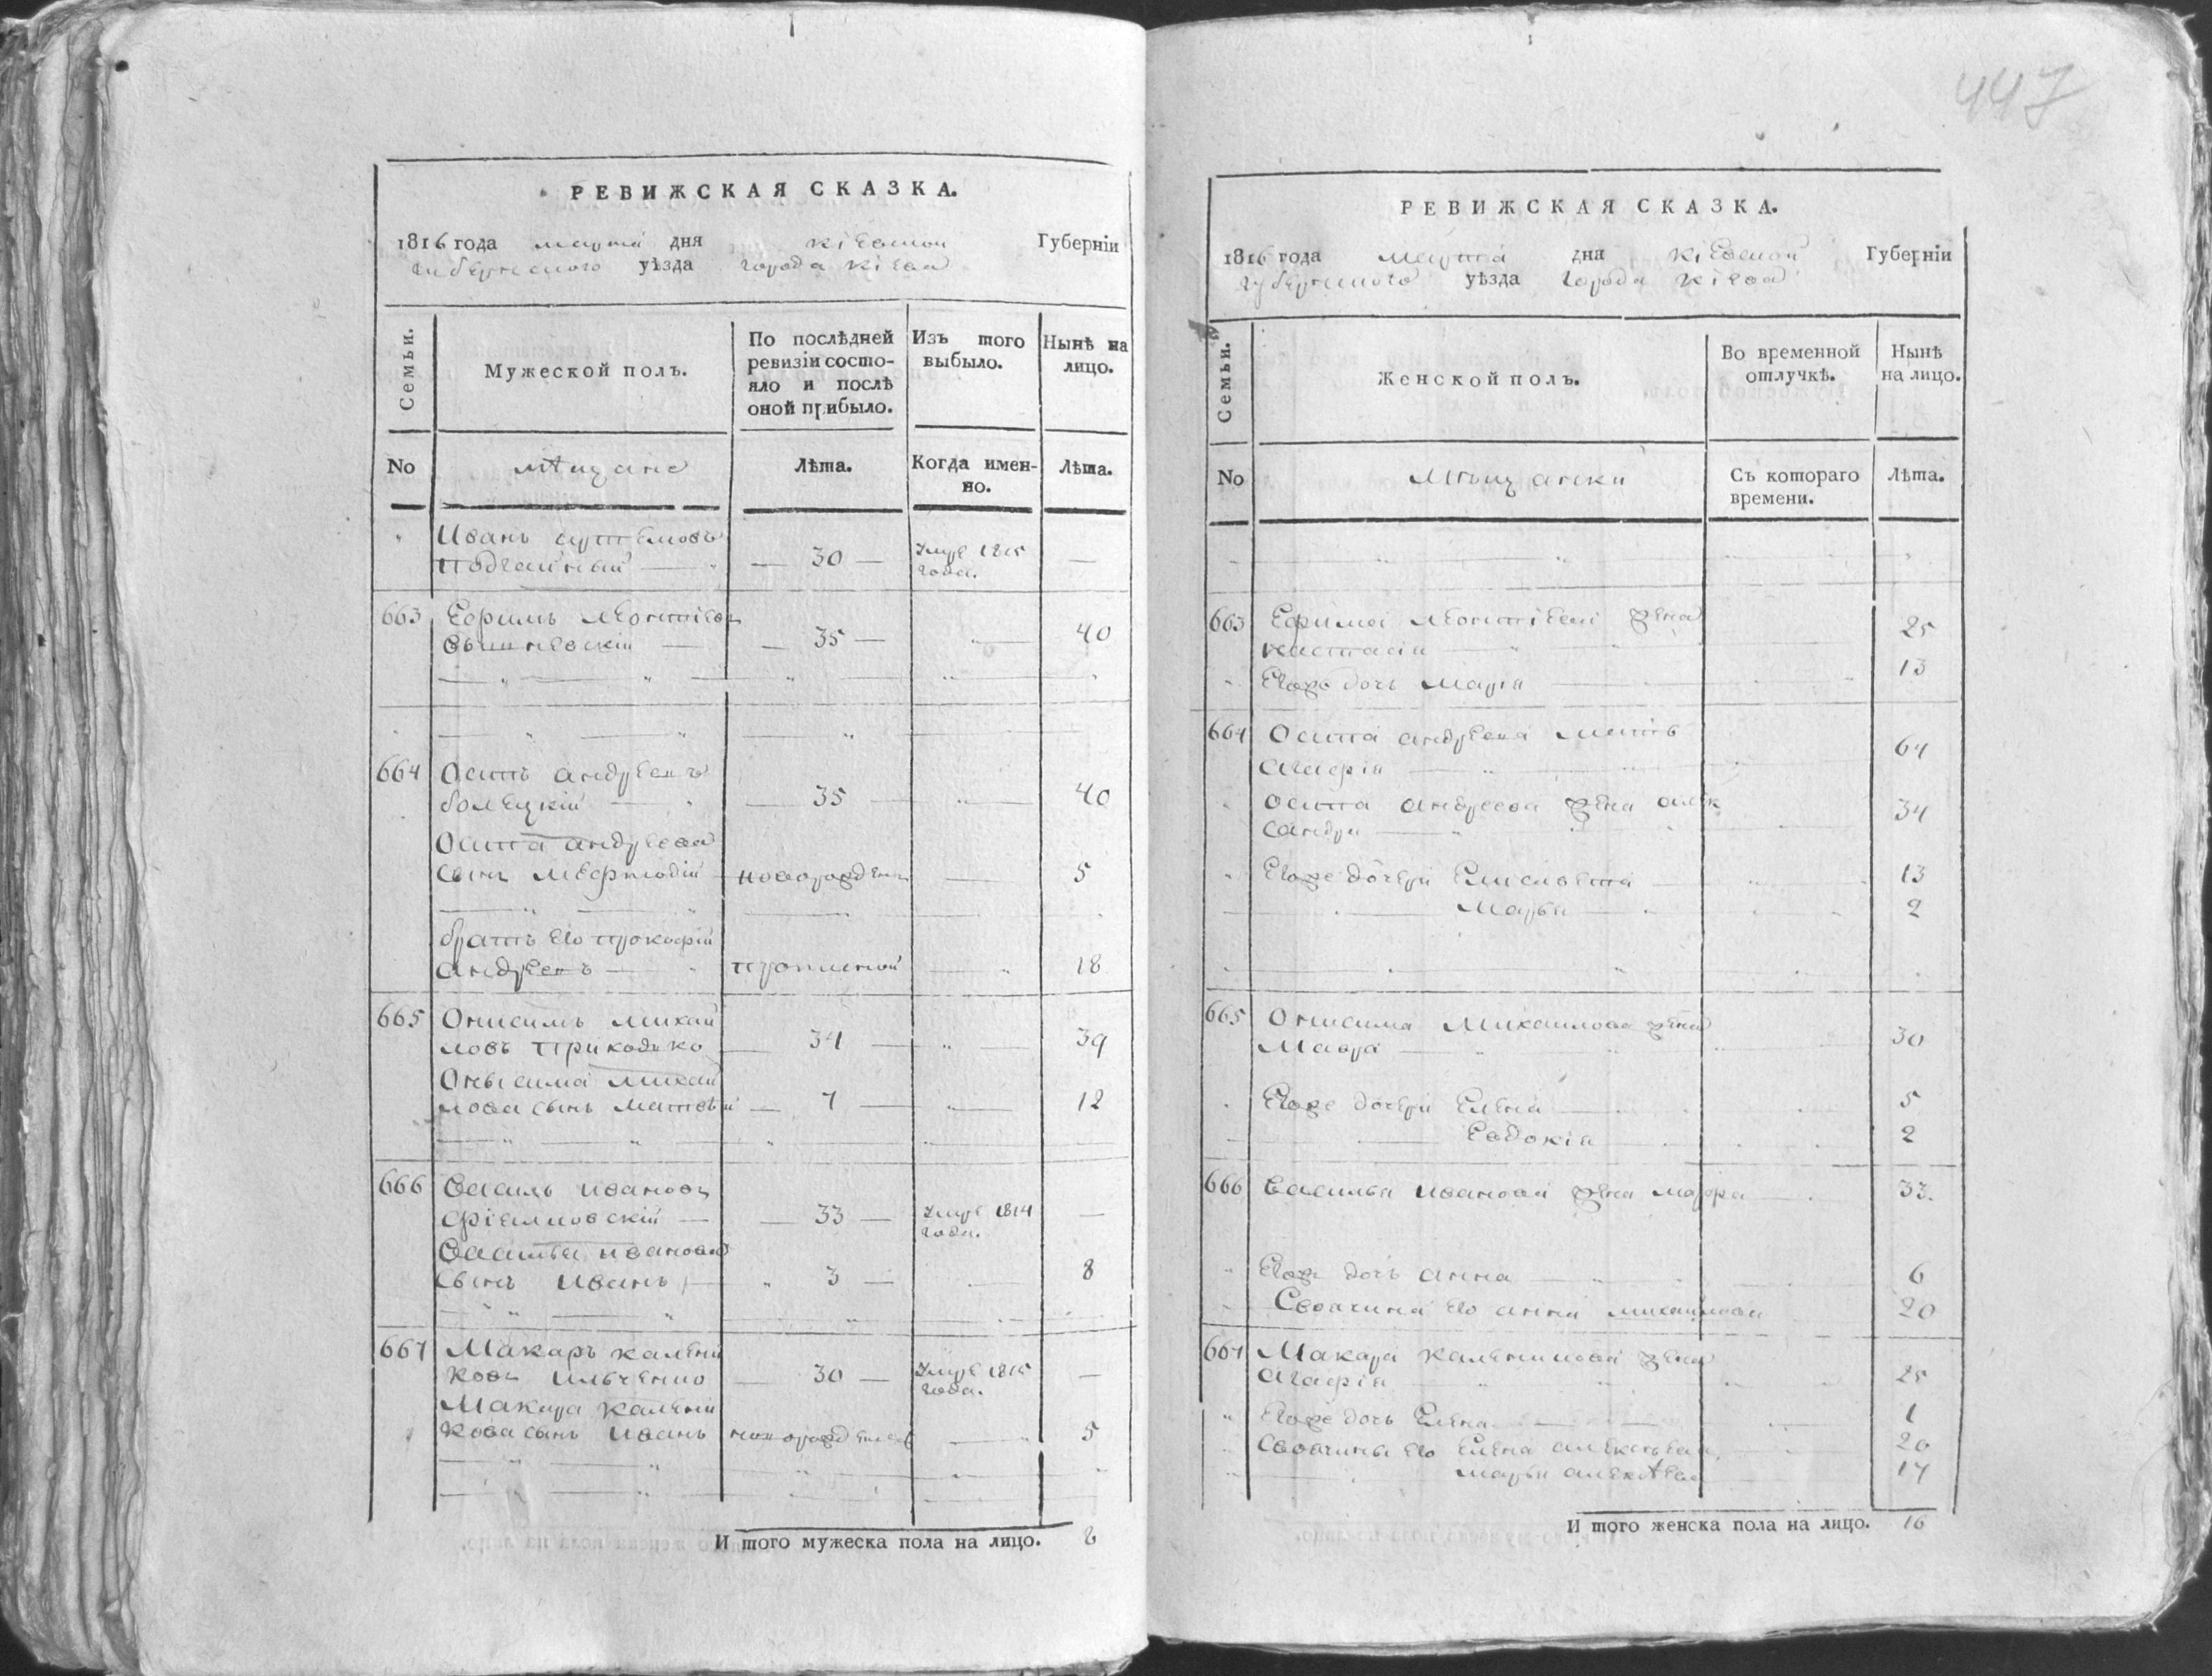 447
РЕВИЖСКАЯ СКАЗКА.
1816 года марта дня Кіевской Губерніи
губернского уѣзда города Кіева
Семьи.
Мужеской полъ.
По послѣдней ревизіи состо-
яло и послѣ
оной прибыло.
Изъ того
выбыло.
Нынѣ на
лицо.
No
мѣщане
Лѣта.
Когда имен-
но.
Лѣта.
Иванъ Артемовъ
— 30 — умре 1815 года. —
663 Ефимъ Леонтіевъ
Вышневскій — 35 — 40
664 Осипъ Андреевъ
болецкій — 35 — 40
Осипа Андреева
сынъ Мефтодій новорожденъ — 5
братъ его Прокофій
Андреевъ прописной 18
665 Онисимъ Михай
ловъ Приходько — 34 — 39
Онысима Михай
лова сынъ Матвѣй — 7 — 12
666 Василь Ивановъ
— 33 — умре 1814 года. —
Василья Иванова
сынъ Иванъ — 3 — 8
667 Макаръ Калени
ковъ Ильченко — 30 — умре 1815 года. —
Макара Калени
кова сынъ Иванъ новорожденъ — 5
И того мужеска пола на лицо. 8
РЕВИЖСКАЯ СКАЗКА.
1816 года Марта дня Кіевской Губерніи
губернского уѣзда города Кіева
Семьи.
Женской полъ.
Во временной
отлучкѣ.
Нынѣ
на лицо.
No
Мѣщанки
Съ котораго
времени.
Лѣта.
663 Ефима Леонтіева жена
Настасія 25
Егоже дочь Марія 13
664 Осипа Андреева мать
Агафія 64
Осипа Андреева жена Алек
сандра 34
Егоже дочери Елисавета 13
Марья 2
665 Онисима Михаилова жена
Мавра 30
Егоже дочери Елена 5
Евдокія 2
666 Василья Иванова жена Марфа 33.
Егоже дочь Анна 6
Своячина его Анна Михайлова 20
667 Макара Каленикова жена
Агафія 25
Егоже дочь Елена 1
Своячины его Елена Алексѣева 20
Марья Алексѣева 17
И того женска пола на лицо. 16